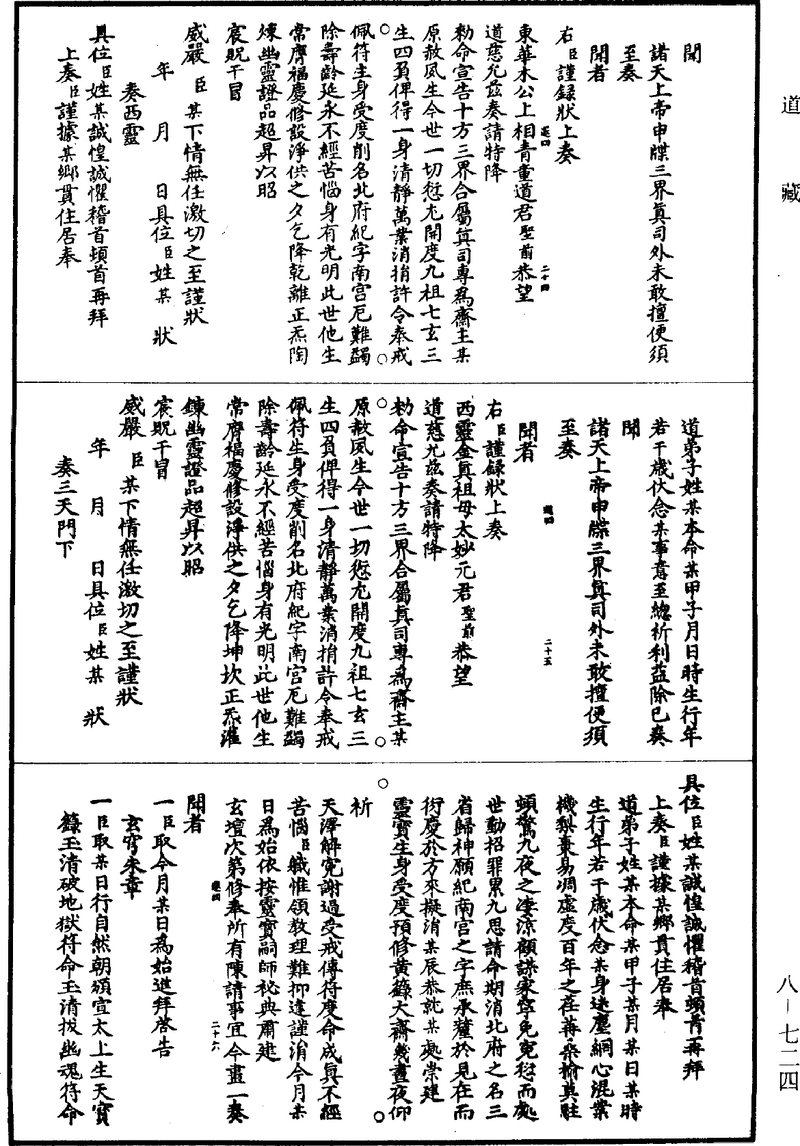 道藏
聞
諸天上帝申牒三界眞司外未敢擅便須
至奏
聞者
右臣謹録狀上奏
東華木公上相青童道君聖前恭望
道慈允茲奏請特降
勑命宣告十方三界合屬眞司專爲齋主某
原赦夙生今世一切愆尤開度九祖七玄三
生四負俾得一身清靜萬業消捐許令奉戒
佩符生身受度削名北府紀字南宮厄難蠲
除壽齡延永不經苦惱身有光明此世他生
常膺福慶修設淨供之夕乞降乾離正炁陶
煉幽靈證品超昇以昭
宸貺干冒
威嚴臣某下情無任激切之至謹狀
年月日具位臣姓某狀
奏西靈
具位臣姓某誠惶誠懼稽首頓首再拜
上奏臣謹據某鄉貫住居奉
道弟子姓某本命某甲子月日時生行年
若干歲伏念某事意至總祈利益除已奏
聞
諸天上帝申牒三界眞司外未敢擅便須
至奏
聞者
右臣謹録狀上奏
西靈金眞祖母太妙元君聖前恭望
道慈允茲奏請特降
勑命宣告十方三界合屬眞司專爲齋主某
原赦夙生今世一切愆尤開度九祖七玄三
生四負俾得一身清靜萬業消捐許令奉戒
佩符生身受度削名北府紀字南宮厄難蠲
除壽齡延永不經苦惱身有光明此世他生
常膺福慶修設淨供之夕乞降坤坎正炁灌
鍊幽靈證品超昇以昭
宸貺干冒
威嚴臣某下情無任激切之至謹狀
年月日具位臣姓某狀
奏三天門下
具位臣姓某誠惶誠懼稽首頓首再拜
上奏臣謹據某鄉貫住居奉
道弟子姓某本命某甲子某月某日某時
生行年若干歲伏念某身迷塵網心混業
機梨棗易凋虛度百年之荏苒桑榆莫駐
頓驚九夜之淒涼顧謀家寧免冤愆而處
世動招罪累九思請命期消北府之名三
省歸神願紀南宮之字庶承釐於見在而
衍慶於方來擬消某辰恭就某處崇建
靈寳生身受度預修黃籙大齋幾晝夜仰
祈
天澤解冤謝過受戒傳符度命成眞不經
苦惱臣職惟領教理難抑違謹涓今月某
日爲始依按靈寳嗣師祕典肅建
玄壇次第修奉所有陳請事宜今畫一奏
聞者
一臣取今月某日爲始進拜啓告
玄穹朱章
一臣取某日行自然朝頒宣太上生天寳
籙玉清破地獄符命玉清拔幽魂符命
八－七二四